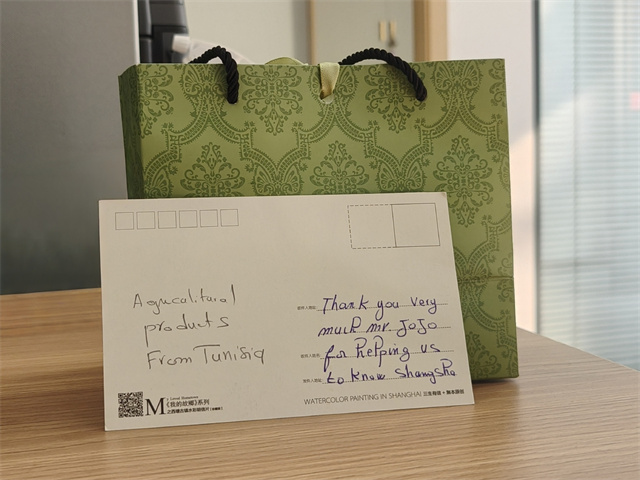 Agucalitural
products
From Tunisia
Thank you very
much mr JoJo
for helping us
to know Shangsha
M
《我的故鄉》系列
WATERCOLOR PAINTING IN SHANGHAI